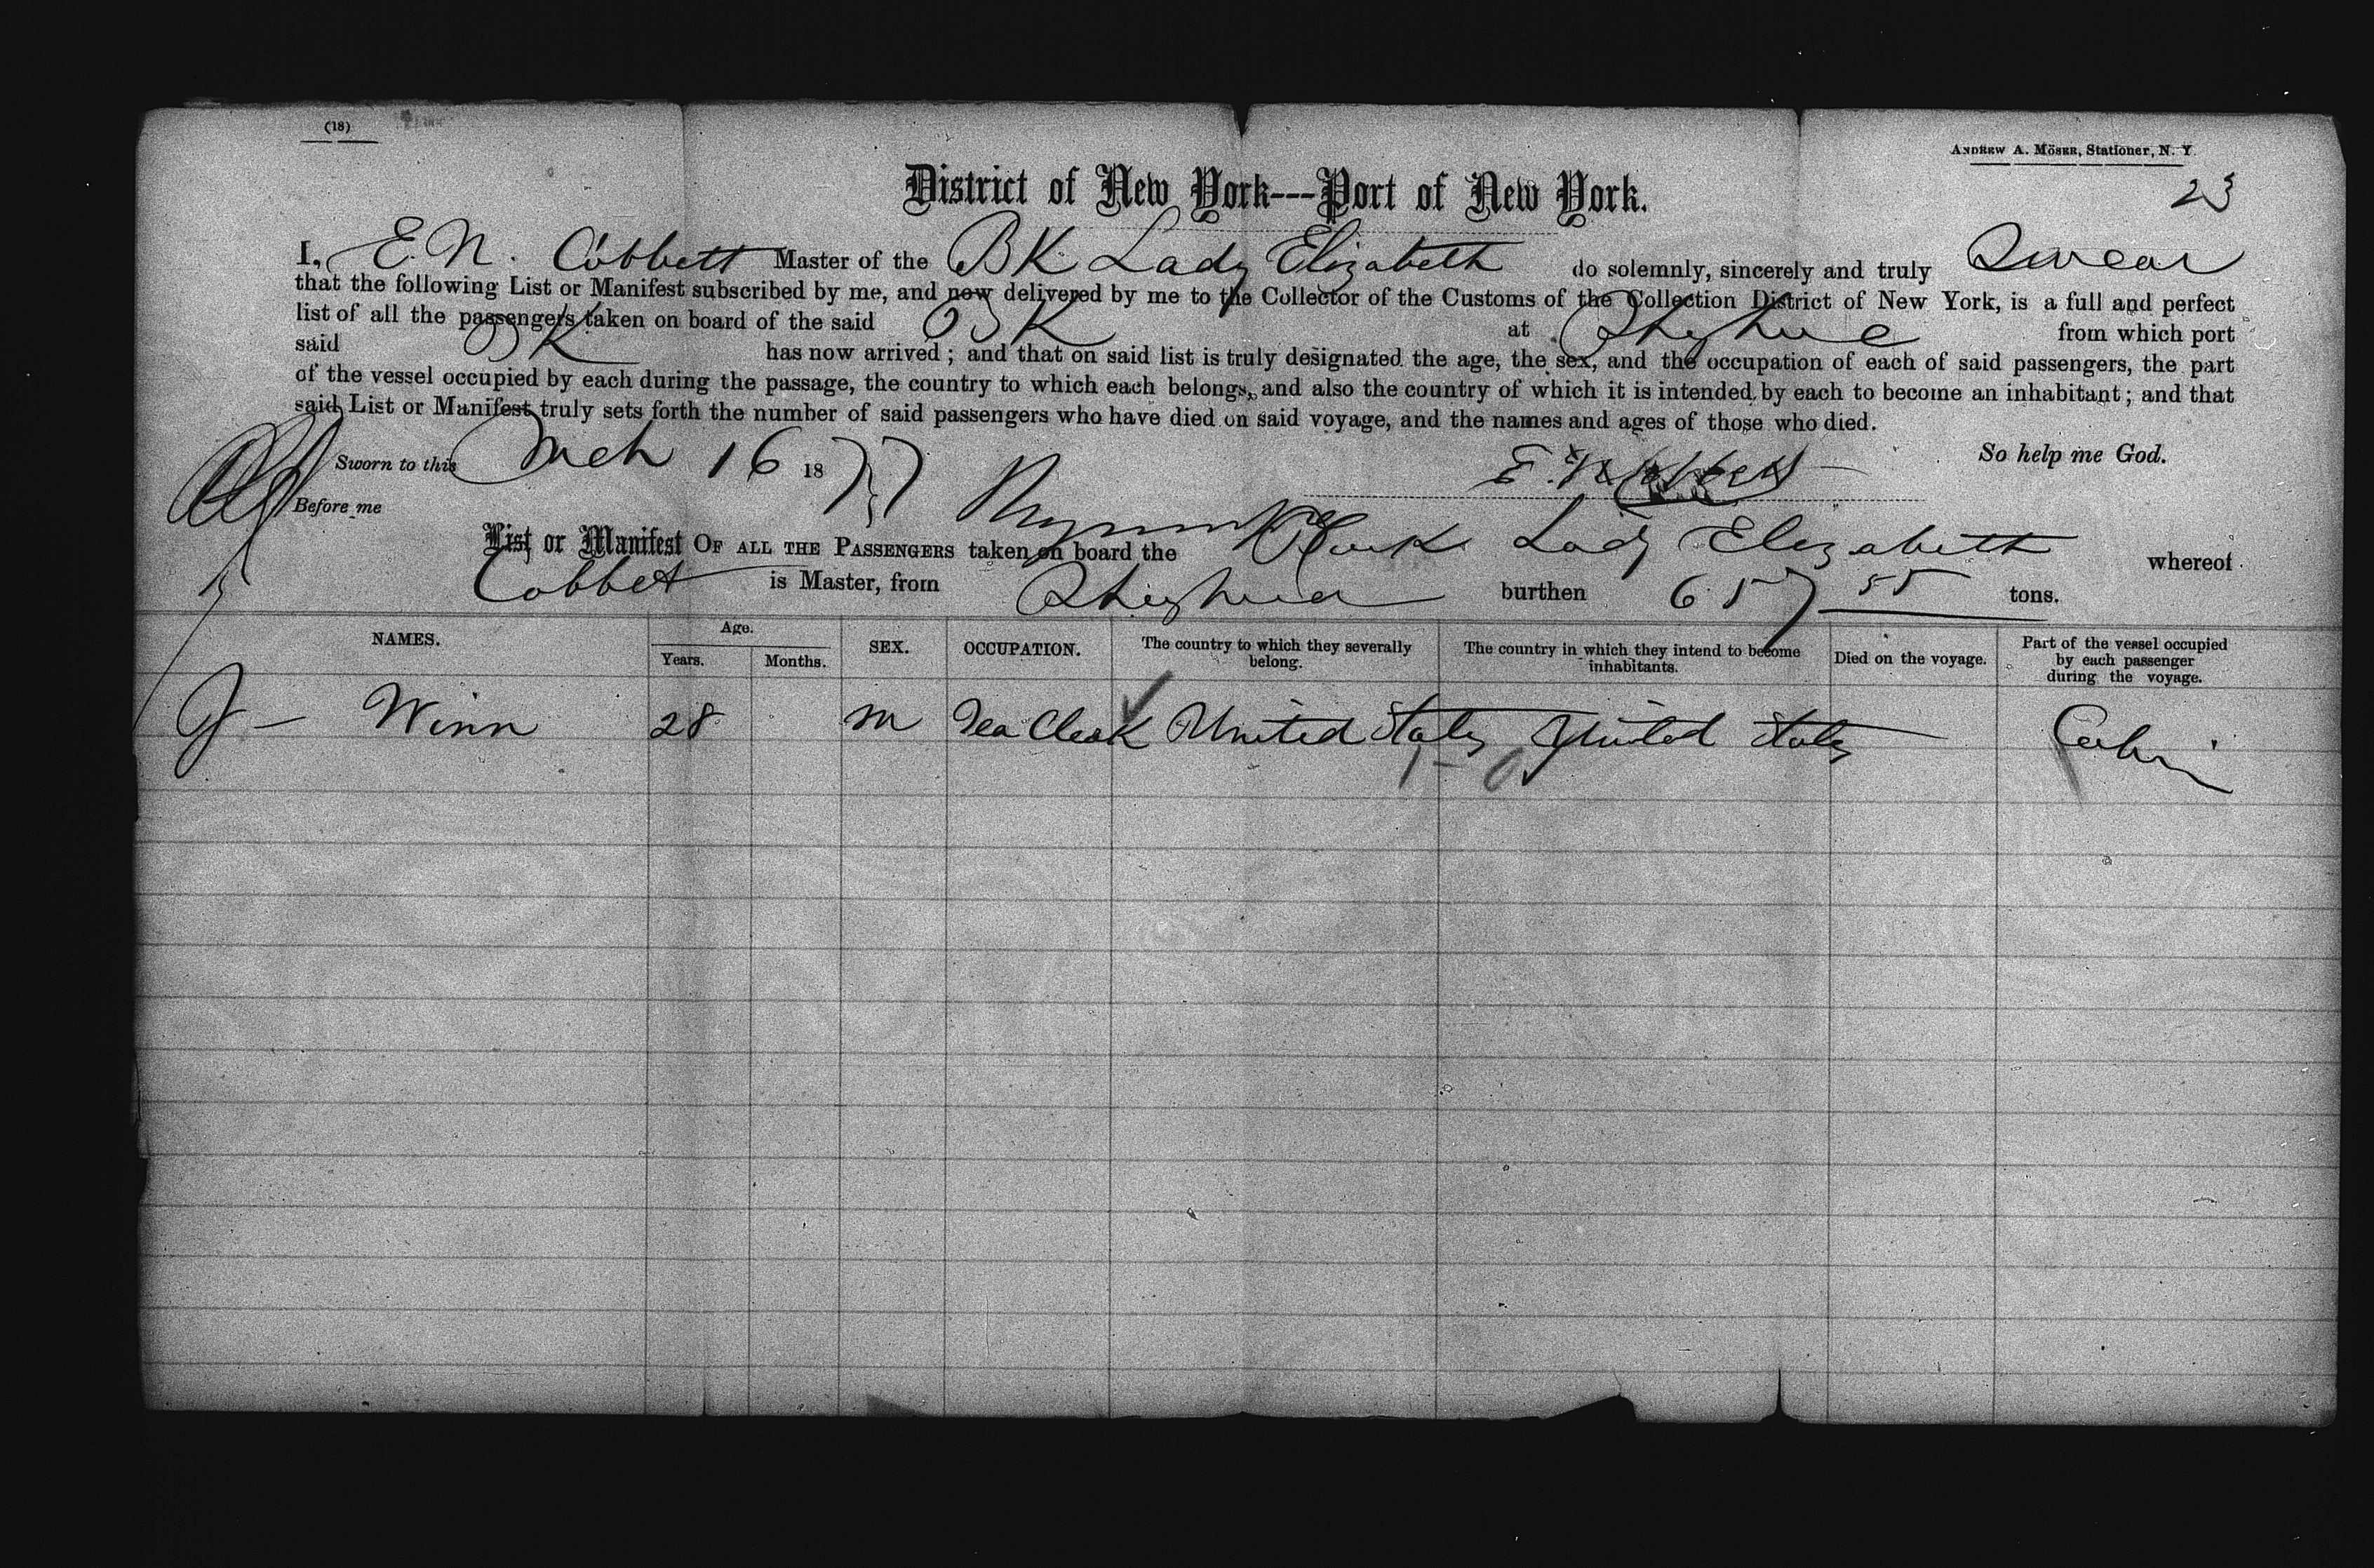 (18)
ANDREW A. MÖSER, Stationer, N. Y.
23
District of New York---Port of New York.
I, E. N. Cobbett Master of the BK Lady Elizabeth do solemnly, sincerely and truly Swear
that the following List or Manifest subscribed by me, and now delivered by me to the Collector of the Customs of the Collection District of New York, is a full and perfect
list of all the passengers taken on board of the said BK at from which port
said BK has now arrived; and that on said list is truly designated the age, the sex, and the occupation of each of said passengers, the part
of the vessel occupied by each during the passage, the country to which each belongs, and also the country of which it is intended by each to become an inhabitant; and that
said List or Manifest truly sets forth the number of said passengers who have died on said voyage, and the names and ages of those who died.
Sworn to this Mch 16 1877 So help me God.
Before me
List or Manifest OF ALL THE PASSENGERS taken on board the Bark Lady Elizabeth whereof
Cobbet is Master, from burthen 657 55 tons.
NAMES. Age. Years. Months. SEX. OCCUPATION. The country to which they severally belong. The country in which they intend to become inhabitants. Died on the voyage. Part of the vessel occupied by each passenger during the voyage.
J - Winn 28 M Tea Clerk United States United States Cabin